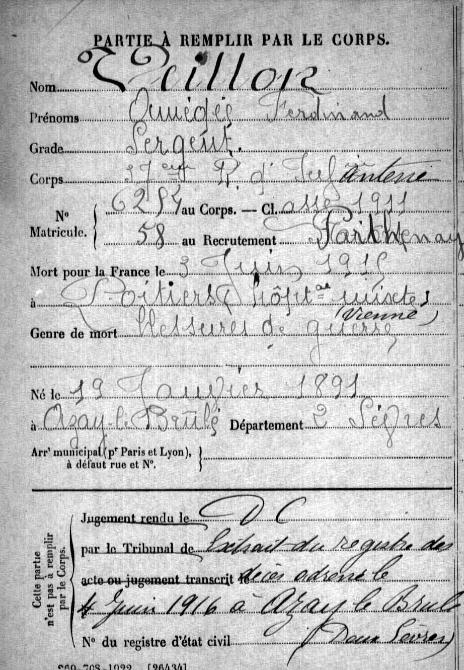 PARTIE À REMPLIR PAR LE CORPS.
Nom Veillon
Prénoms Amédée Ferdinand
Grade Sergent.
Corps R d'Infanterie
N° Matricule. 6254 au Corps. — Cl. asse 1911
58 au Recrutement Parthenay
Mort pour la France le 3 Juin 1915
à Poitiers (hôpital mixte)
(Vienne)
Genre de mort blessures de guerre
Né le 19 Janvier 1891
à Azay-le-Brûlé Département 2 Sèvres
Arr' municipal (pr Paris et Lyon),
à défaut rue et N°.
Cette partie n'est pas à remplir par le Corps.
Jugement rendu le DC
par le Tribunal de Extrait du registre des
acte ou jugement transcrit le décès adressé le
4 Juin 1916 à Azay le Brulé
N° du registre d'état civil (Deux Sèvres)
[26434]